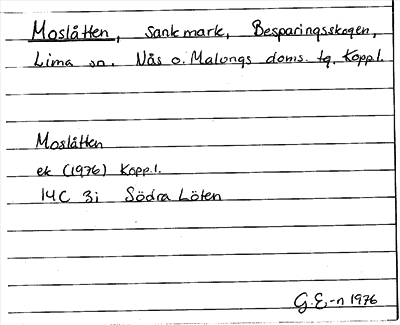 Moslåtten, sankmark, Besparingsskogen,
Lima sn. Nås o. Malungs doms. tg. Kopp.l.
Moslåtten
ek (1976) Kopp.l.
14C 3i Södra Löten
G.E-n 1976